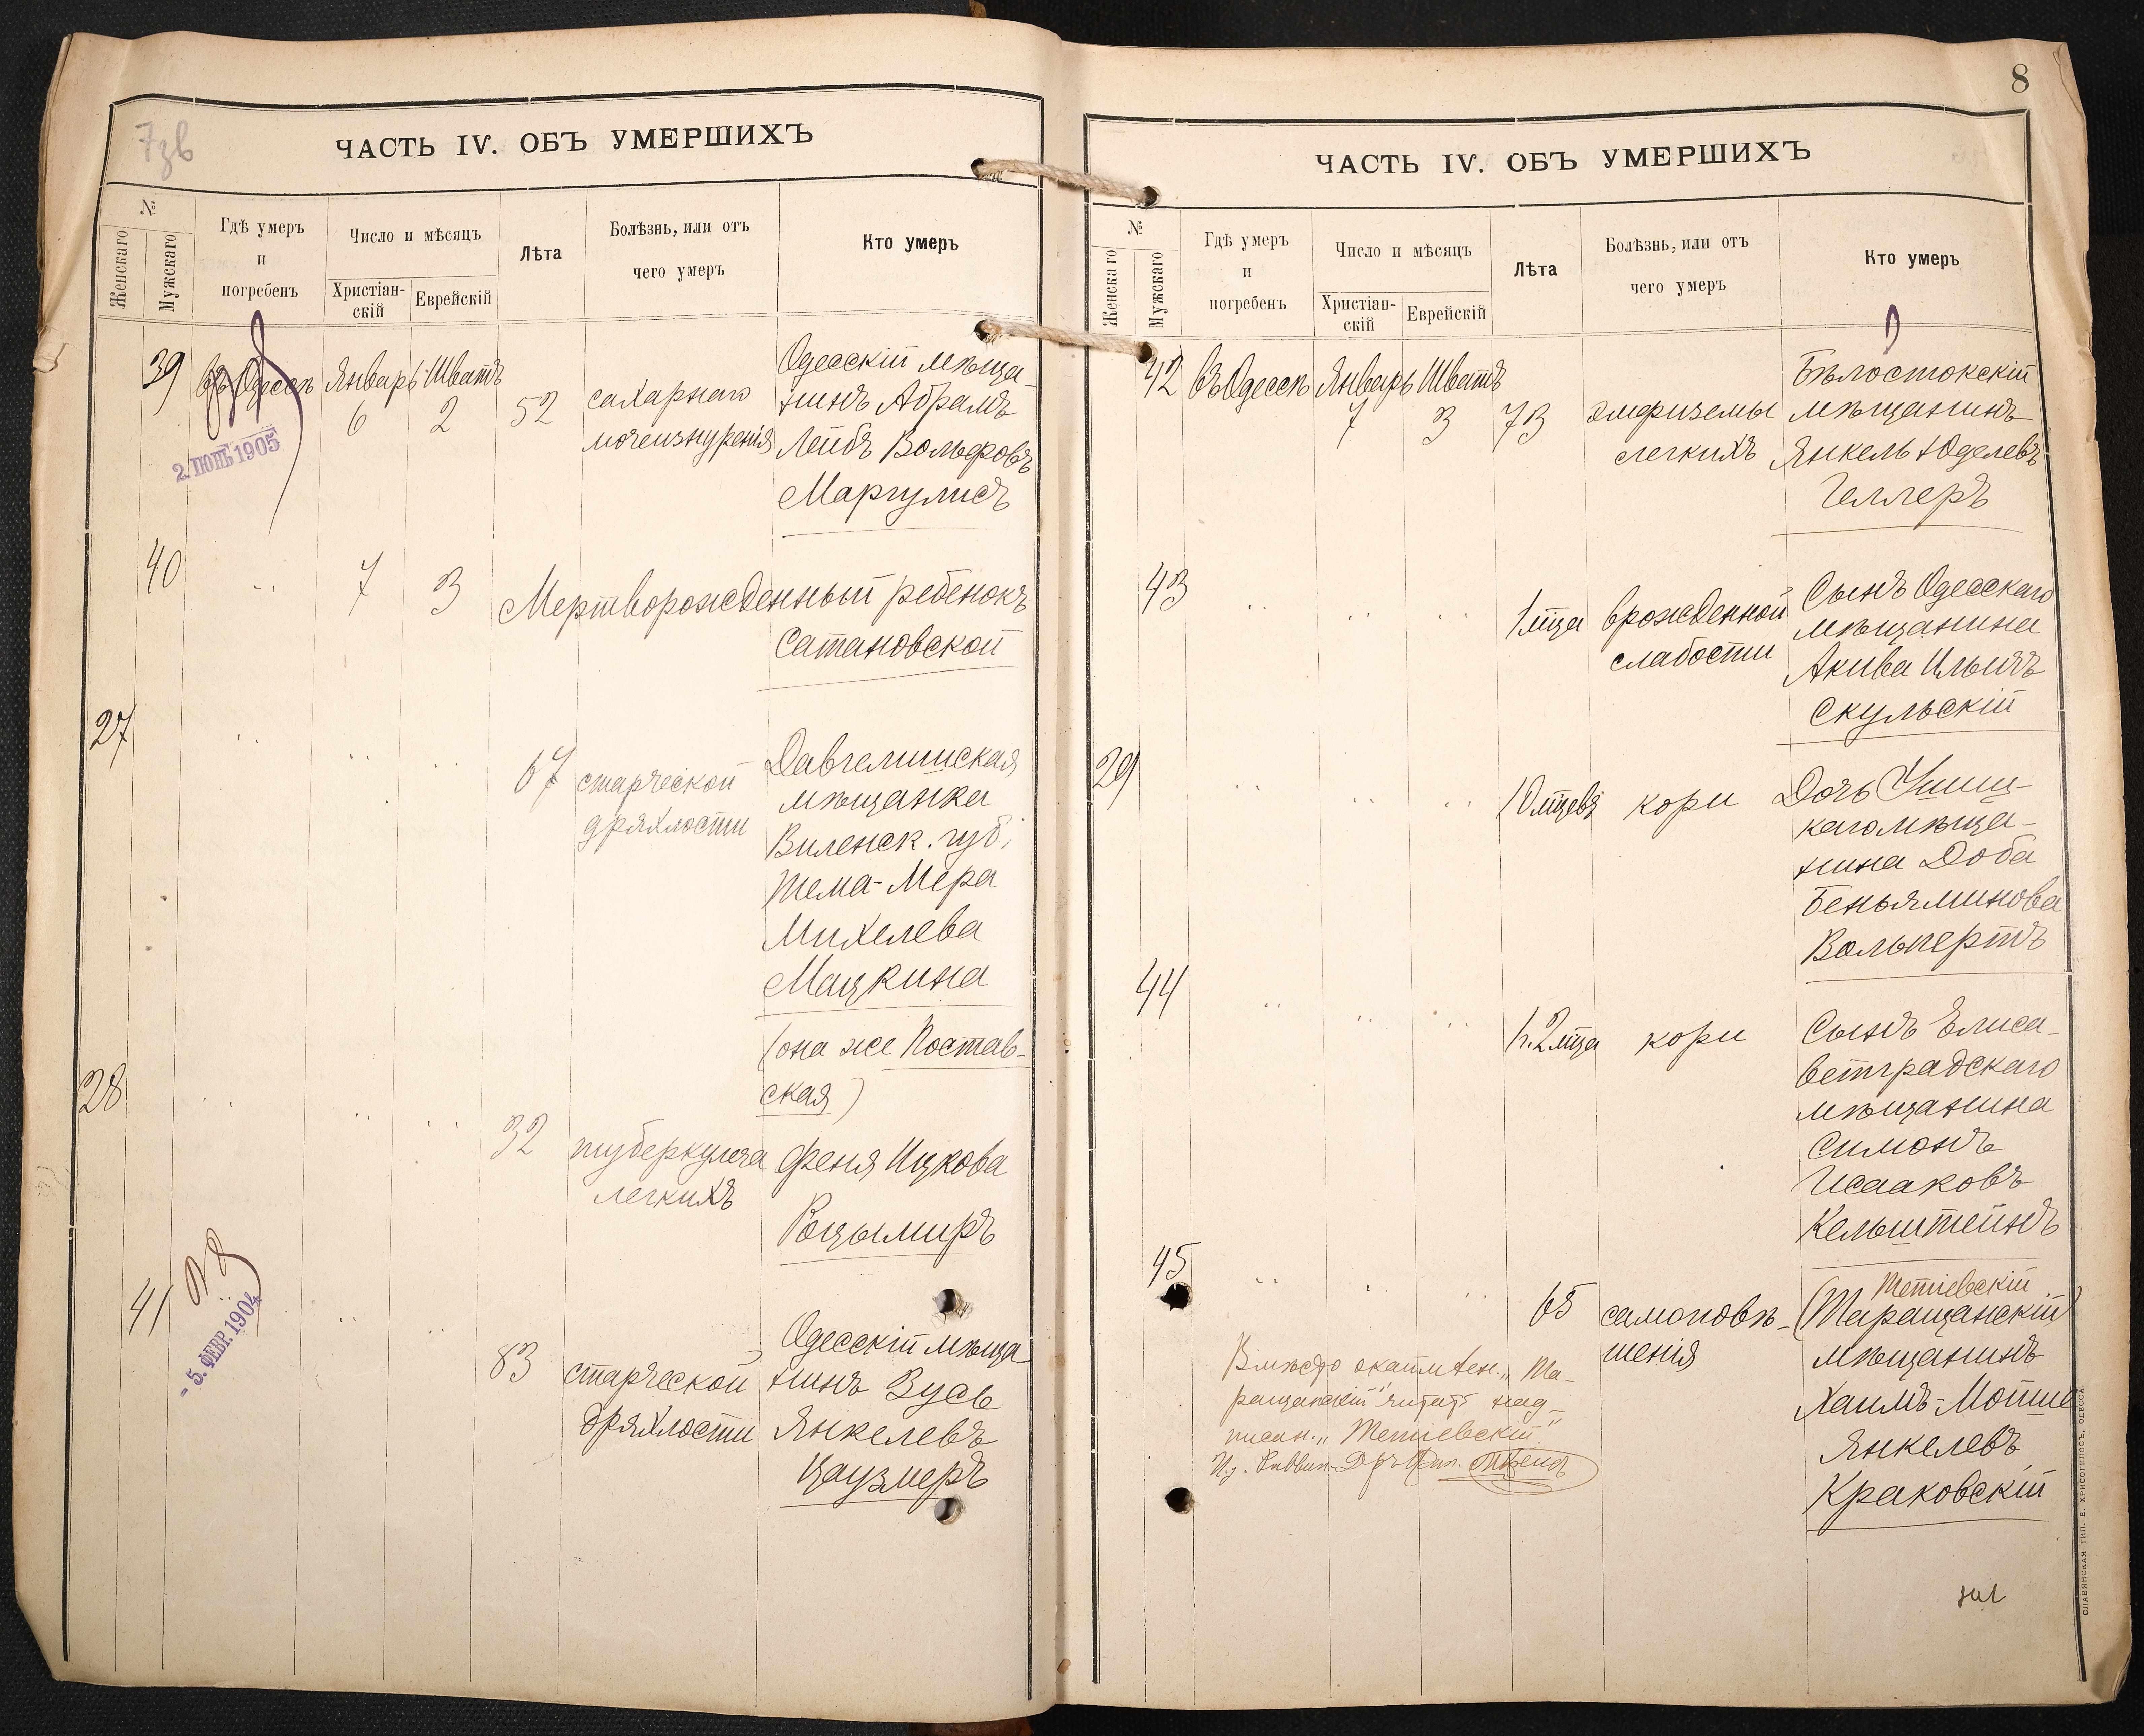 7зв
ЧАСТЬ IV. ОБЪ УМЕРШИХЪ
№
Женскаго
Мужскаго
Гдѣ умеръ
и
погребенъ
Число и мѣсяцъ
Христіан-
скій
Еврейскій
Лѣта
Болѣзнь, или отъ
чего умеръ
Кто умеръ
39 въ Одессѣ Январь Шватъ
6 2 52
2. ІЮНЬ 1905
сахарнаго
мочеизнуренія
Одесскій мѣща-
нинъ Абрамъ
Лейбъ Вольфовъ
Маргулисъ
40 " 7 3 Мертворожденный ребенокъ
Сатановской
27 " " " 67 старческой
дряхлости
Давгелишская
мѣщанка
Виленск. губ.,
Тема-Мера
Михелева
Мацкина
(она же Постав-
ская)
28 " " " 32 туберкулеза
легкихъ
Феня Ицкова
Роцымиръ
41 " " " 83 старческой
дряхлости
- 5. ФЕВР. 1904
Одесскій мѣща-
нинъ Зусь
Янкелевъ
Цаузмеръ
8
ЧАСТЬ IV. ОБЪ УМЕРШИХЪ
№
Женскаго
Мужскаго
Гдѣ умеръ
и
погребенъ
Число и мѣсяцъ
Христіан-
скій
Еврейскій
Лѣта
Болѣзнь, или отъ
чего умеръ
Кто умеръ
42 въ Одессѣ Январь Шватъ
7 3 73
эмфиземы
легкихъ
Бѣлостокскій
мѣщанинъ
Янкель Юделевъ
Геллеръ
43 " " " 1 мца врожденной
слабости
Сынъ Одесскаго
мѣщанина
Акива Ильичъ
Скульскій
29 " " " 10 мцевъ кори
Дочь Ушиц-
каго мѣща-
нина Доба
Беньяминова
Вольпертъ
44 " " " 1 г. 2 мца кори
Сынъ Елиса-
ветградскаго
мѣщанина
Симонъ
Исааковъ
Кельштейнъ
45 " " " 65 самоповѣ-
шенія
Тетіевскій
(Таращанскій)
мѣщанинъ
Хаимъ-Мойше
Янкелевъ
Краковскій
Вмѣсто окаймлен. „Та-
ращанскій" читать над-
писан. „Тетіевскій"
И.д. Раввин.
СЛАВЯНСКАЯ ТИП. Е. ХРИСОГЕЛОСЪ, ОДЕССА.